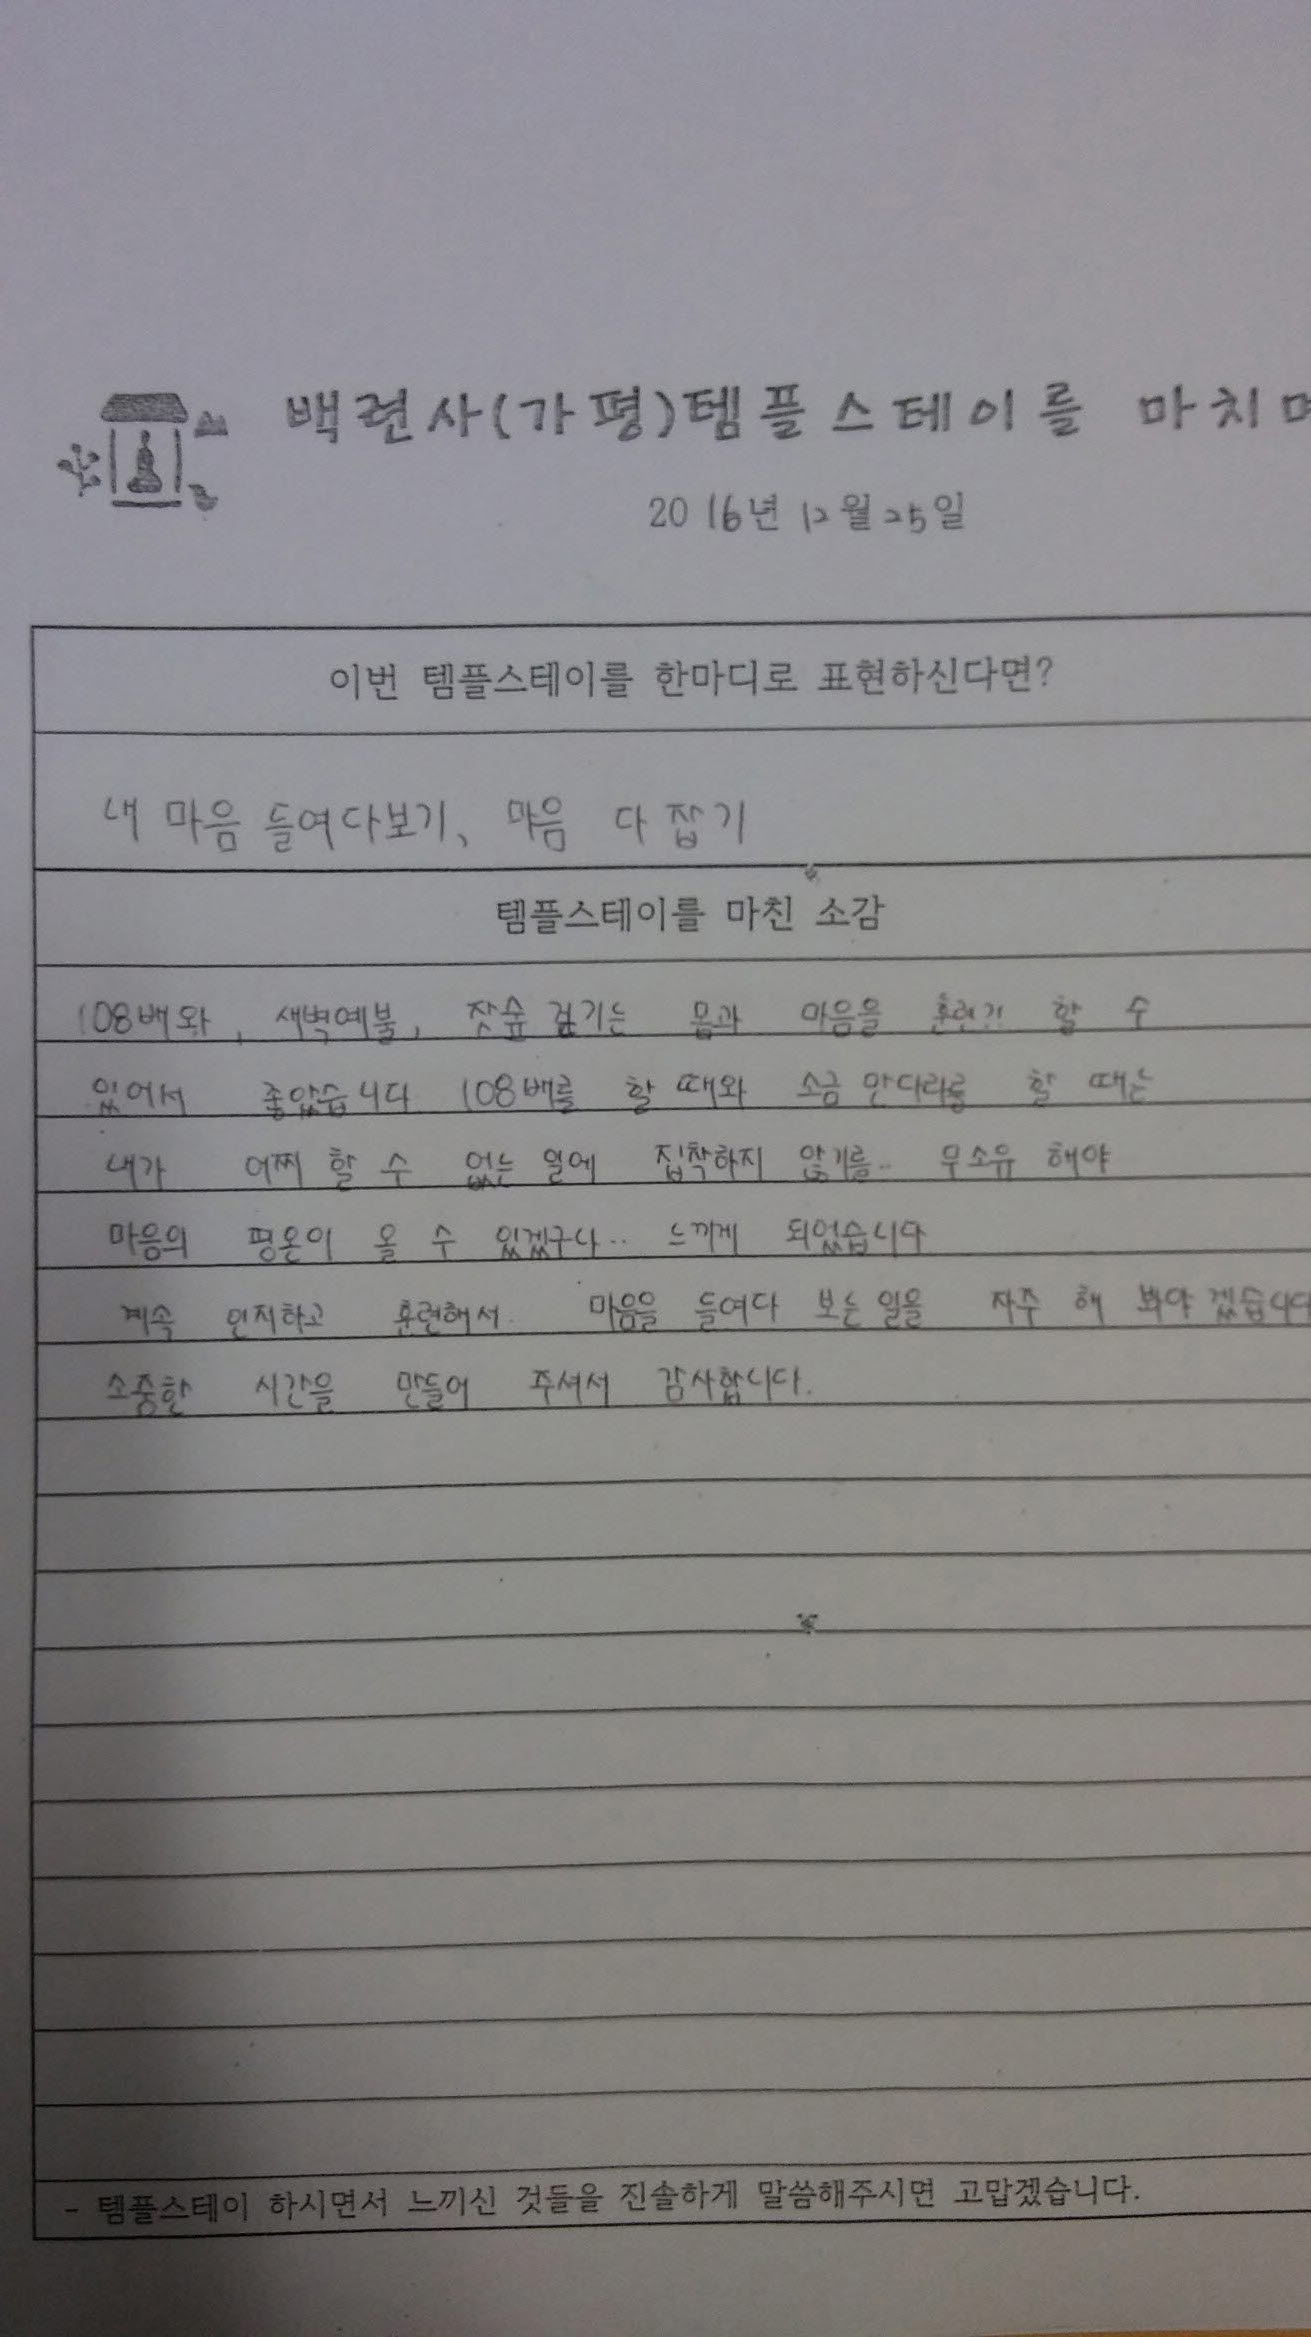 백련사(가평)템플스테이를 마치며
2016년 12월 25일
이번 템플스테이를 한마디로 표현하신다면?
내 마음 들여다보기, 마음 다 잡기
템플스테이를 마친 소감
108배와, 새벽예불, 잣숲 걷기는 몸과 마음을 할 수
있어서 좋았습니다 108배를 할 때와 소금 만다라를 할 때는
내가 어찌 할 수 없는 일에 집착하지 않기를.. 무소유 해야
마음의 평온이 올 수 있겠구나.. 느끼게 되었습니다
계속 인지하고 훈련해서 마음을 들여다 보는 일을 자주 해 봐야 겠습니다
소중한 시간을 만들어 주셔서 감사합니다.
- 템플스테이 하시면서 느끼신 것들을 진솔하게 말씀해주시면 고맙겠습니다.